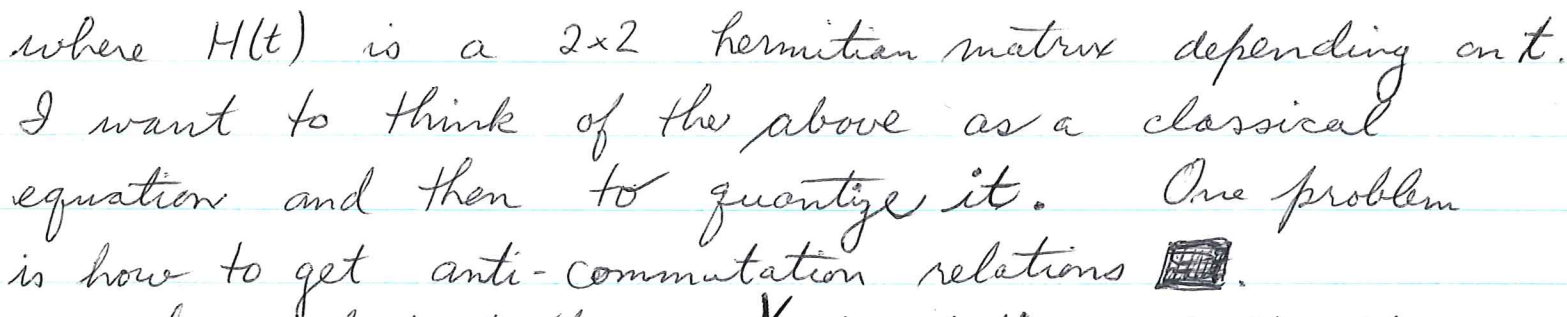 where H(t) is a 2×2 hermitian matrix depending on t.
I want to think of the above as a classical
equation and then to quantize it. One problem
is how to get anti-commutation relations .